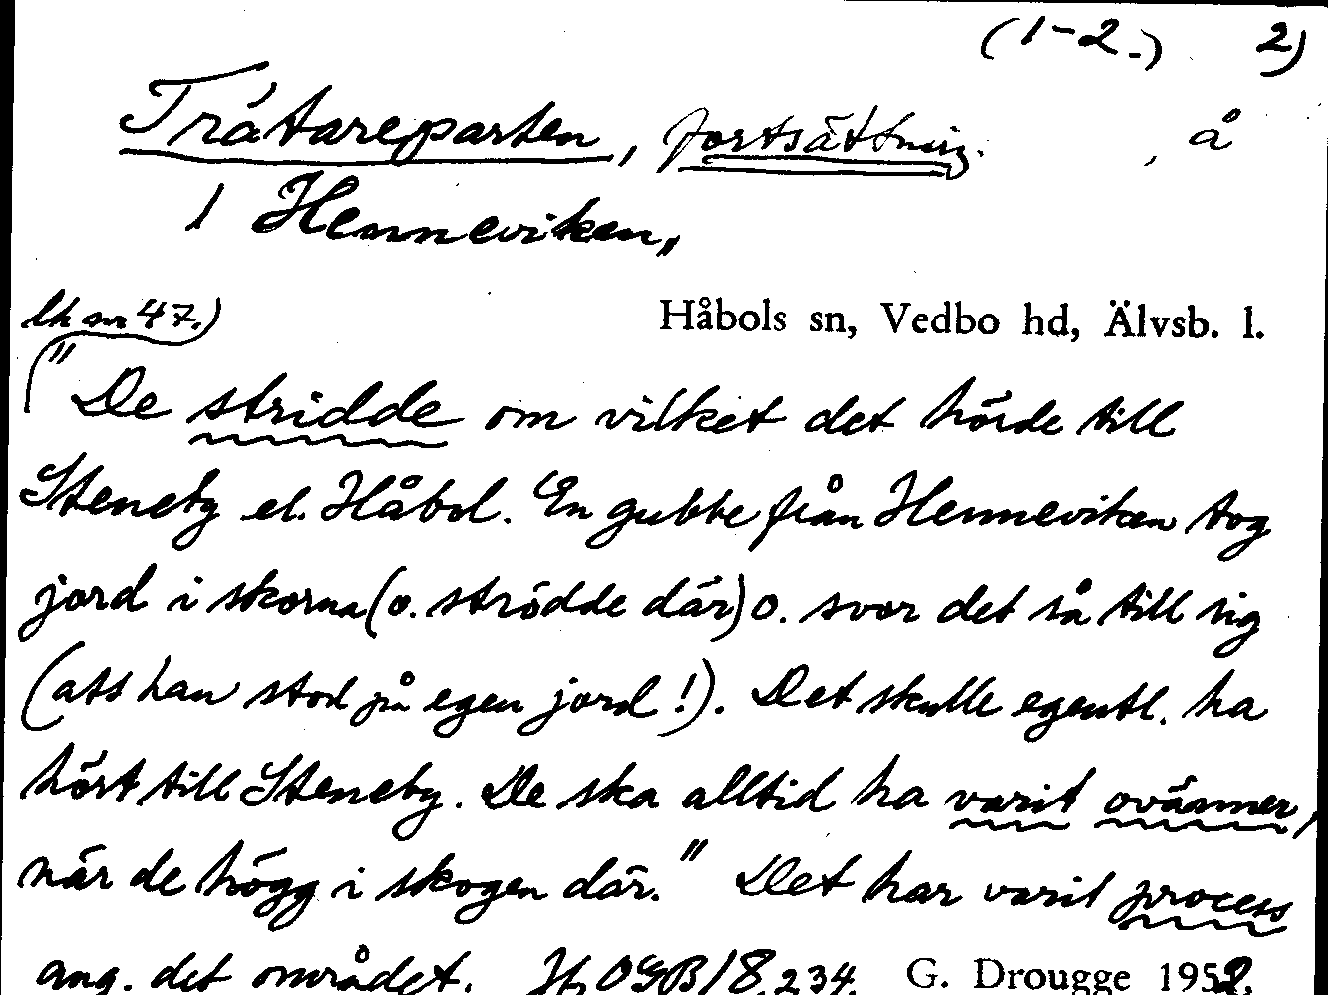 (1-2.) 2)
Tråtareparten, fortsättning. , å
1 Henneviken,,
Håbols sn, Vedbo hd, Älvsb. l.
(lk nr 47.)
"De stridde om vilket det hörde till
Steneby el. Håbol. En gubbe från Henneviken tog
jord i skorna (o. strödde där) o. svor det så till sig
(att han stod på egen jord!). Det skulle egentl. ha
hört till Steneby. De ska alltid ha varit ovänner,
när de högg i skogen där." Det har varit process
ang. det området. Jfr OGB 18, 234. G. Drougge 1952.